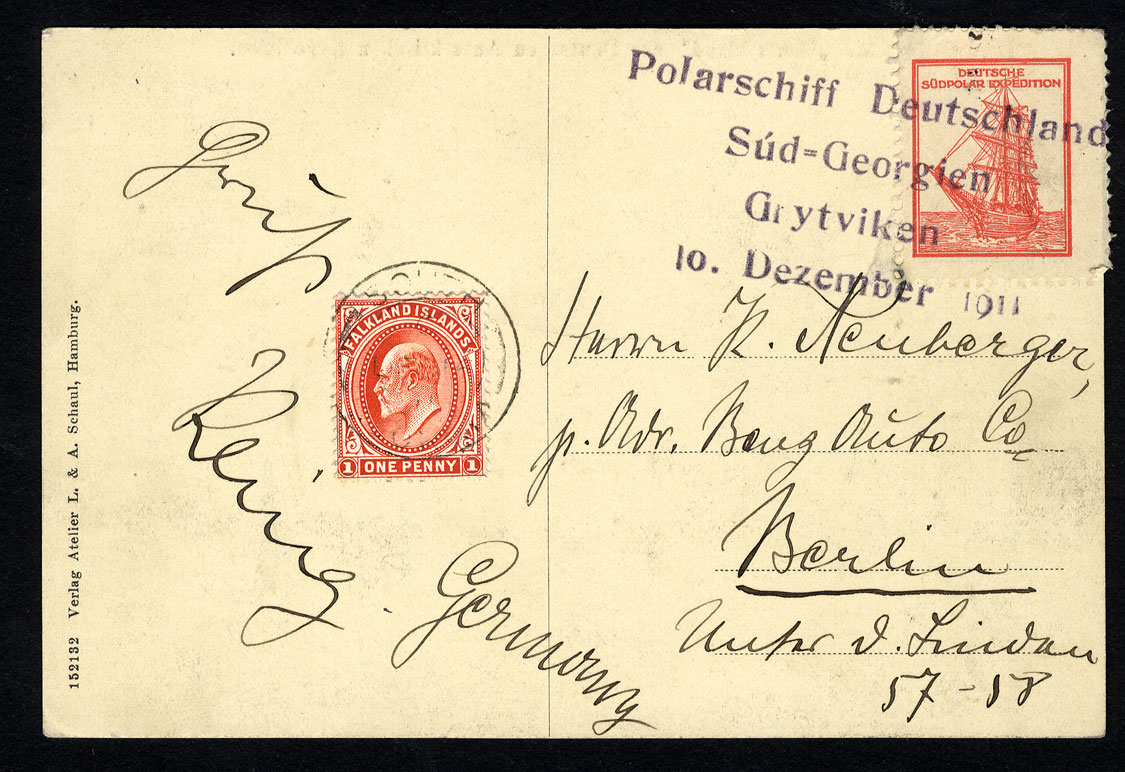 Polarschiff Deutschland
Süd=Georgien
Grytviken
10. Dezember 1911
DEUTSCHE
SÜDPOLAR EXPEDITION
Gruß
FALKLAND ISLANDS
1 ONE PENNY 1
Herrn K. Neuberger,
p. Adr. Benz Auto Co
Berlin
Unter d. Linden
57-58
Germany
152132 Verlag Atelier L. & A. Schaul, Hamburg.